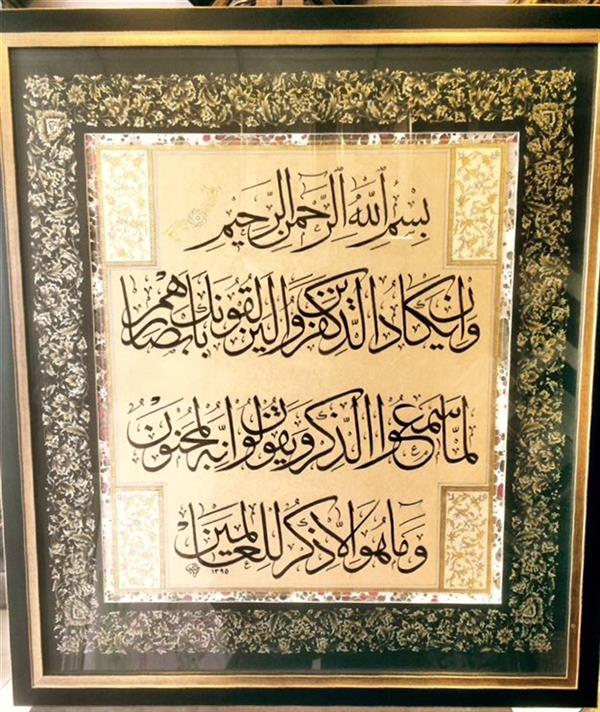 بسم الله الرحمن الرحيم
وان يكاد الذين كفروا ليزلقونك بابصارهم
لما سمعوا الذكر ويقولون انه لمجنون
وما هو الا ذكر للعالمين
١٣٩٥